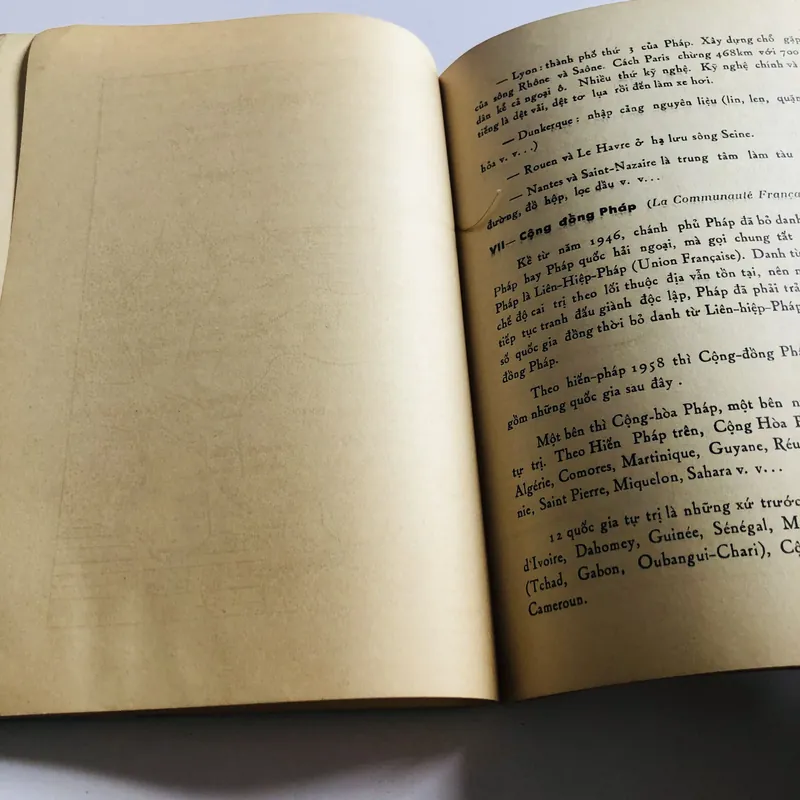 — Lyon : thành phố thứ 3 của Pháp. Xây dựng chỗ gặp
của sông Rhône và Saône. Cách Paris chừng 468km với 700
dân kể cả ngoại ô. Nhiều thứ kỹ nghệ. Kỹ nghệ chính và
tiếng là dệt vải, dệt tơ lụa rồi đến làm xe hơi.
— Dunkerque : nhập cảng nguyên liệu (lin, len, quặn
hóa v. v. . .)
— Rouen và Le Havre ở hạ lưu sông Seine.
— Nantes và Saint-Nazaire là trung tâm làm tàu
đường, đồ hộp, lọc dầu v. v. . .
VII— Cộng đồng Pháp (La Communauté França
Kể từ năm 1946, chánh phủ Pháp đã bỏ danh
Pháp hay Pháp quốc hải ngoại, mà gọi chung tất
Pháp là Liên-Hiệp-Pháp (Union Française). Danh từ
chế độ cai trị theo lối thuộc địa vẫn tồn tại, nên n
tiếp tục tranh đấu giành độc lập, Pháp đã phải trả
số quốc gia đồng thời bỏ danh từ Liên-hiệp-Pháp
đồng Pháp.
Theo hiến-pháp 1958 thì Cộng-đồng Phá
gồm những quốc gia sau đây .
Một bên thì Cộng-hòa Pháp, một bên n
tự trị. Theo Hiến Pháp trên, Cộng Hòa P
Algérie, Comores, Martinique, Guyane, Réu
nie, Saint Pierre, Miquelon, Sahara v. v. . .
12 quốc gia tự trị là những xứ trước
d'Ivoire, Dahomey, Guinée, Sénégal, M
(Tchad, Gabon, Oubangui-Chari), Cộ
Cameroun.